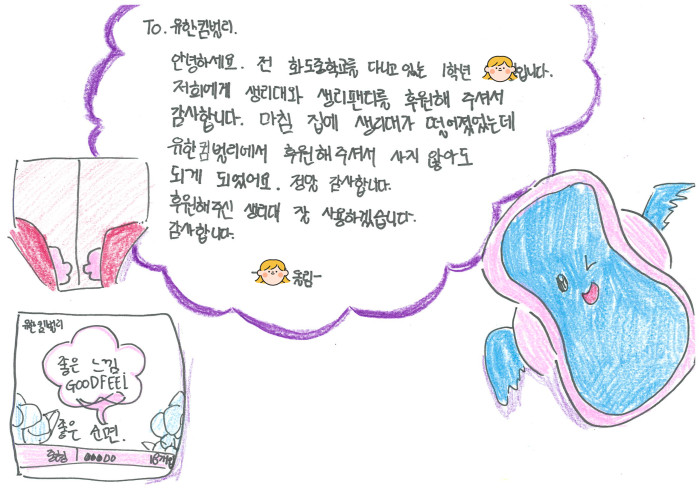 To. 유한킴벌리.
안녕하세요. 전 화도중학교를 다니고 있는 1학년 입니다.
저희에게 생리대와 생리팬티를 후원해 주셔서
감사합니다. 마침 집에 생리대가 떨어졌었는데
유한킴벌리에서 후원해주셔서 사지 않아도
되게 되었어요. 정말 감사합니다.
후원해주신 생리대 잘 사용하겠습니다.
감사합니다.
- 올림-
유한킴벌리
좋은 느낌
GOODFEEl
좋은 순면.
중형